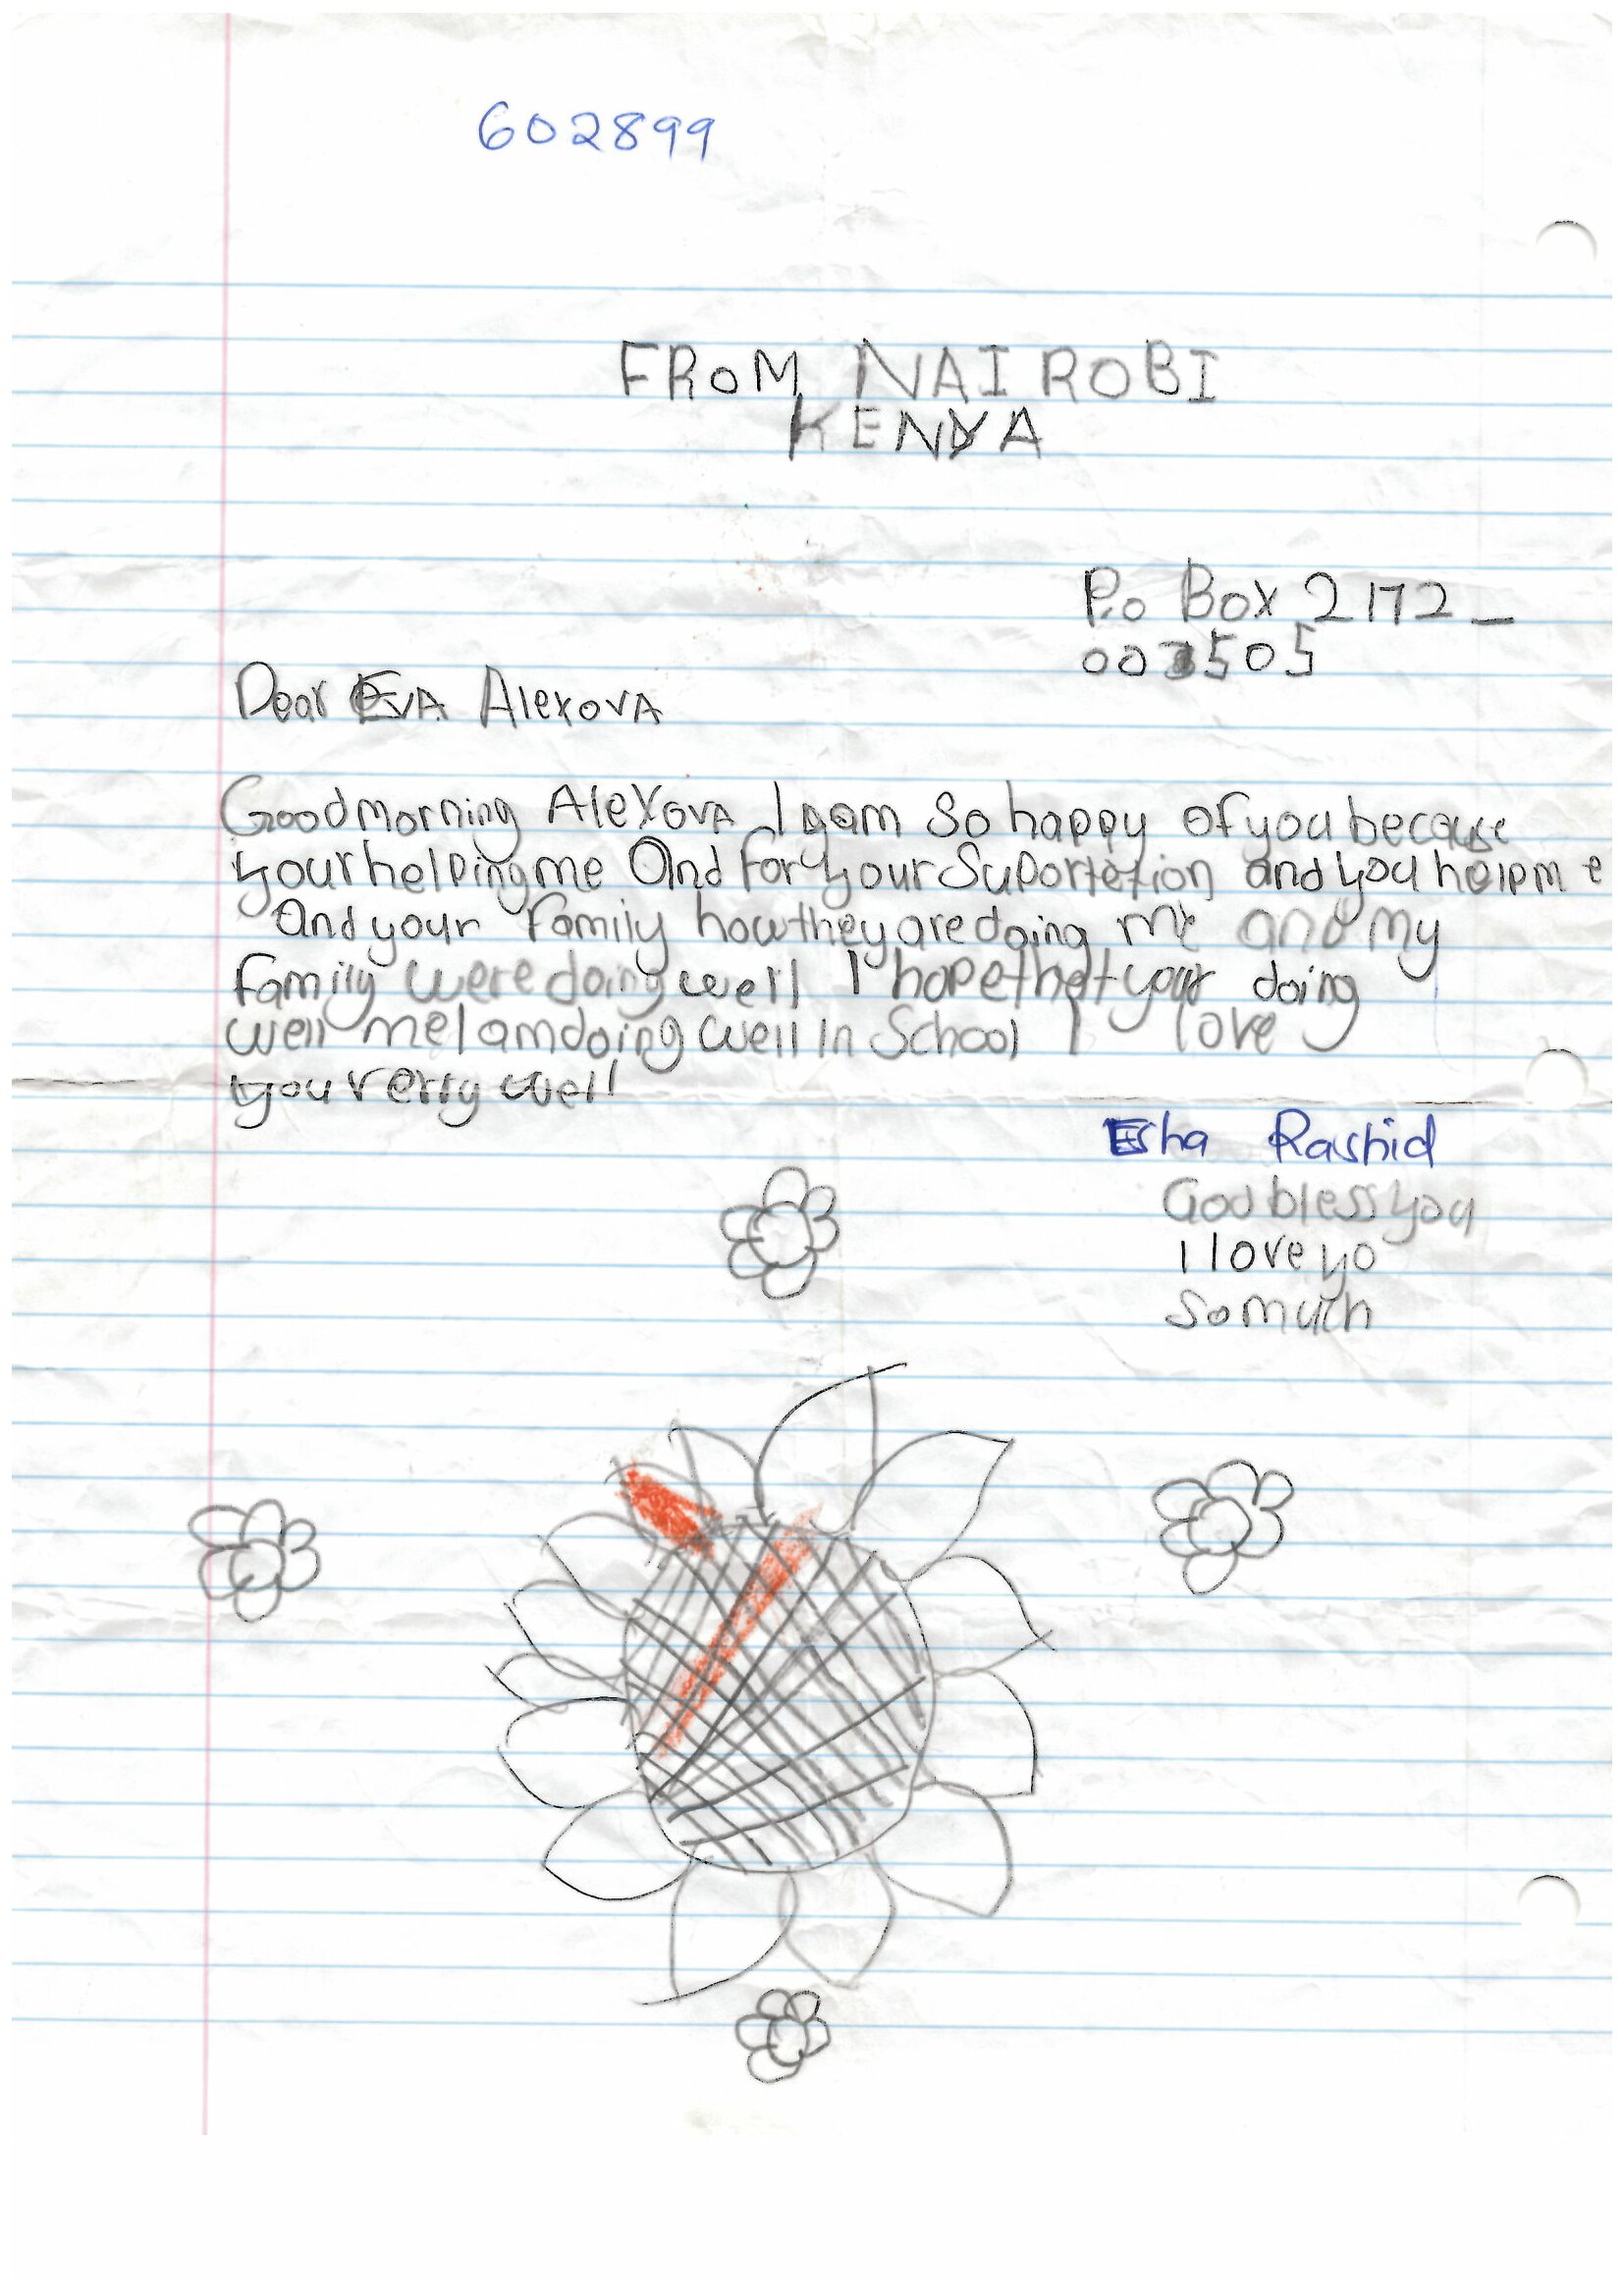 602899
FROM NAIROBI
KENYA
P.o Box 2172 _
003505
Dear EVA AlexovA
Good morning AleXovA I am So happy of you because
your helping me And For your Suportetion and you help me
And your Family how they are doing me and My
Family were doing well I hope thet your doing
well me I am doing well In School I love
you verry well
Esha Rashid
God bless you
I love yo
So much